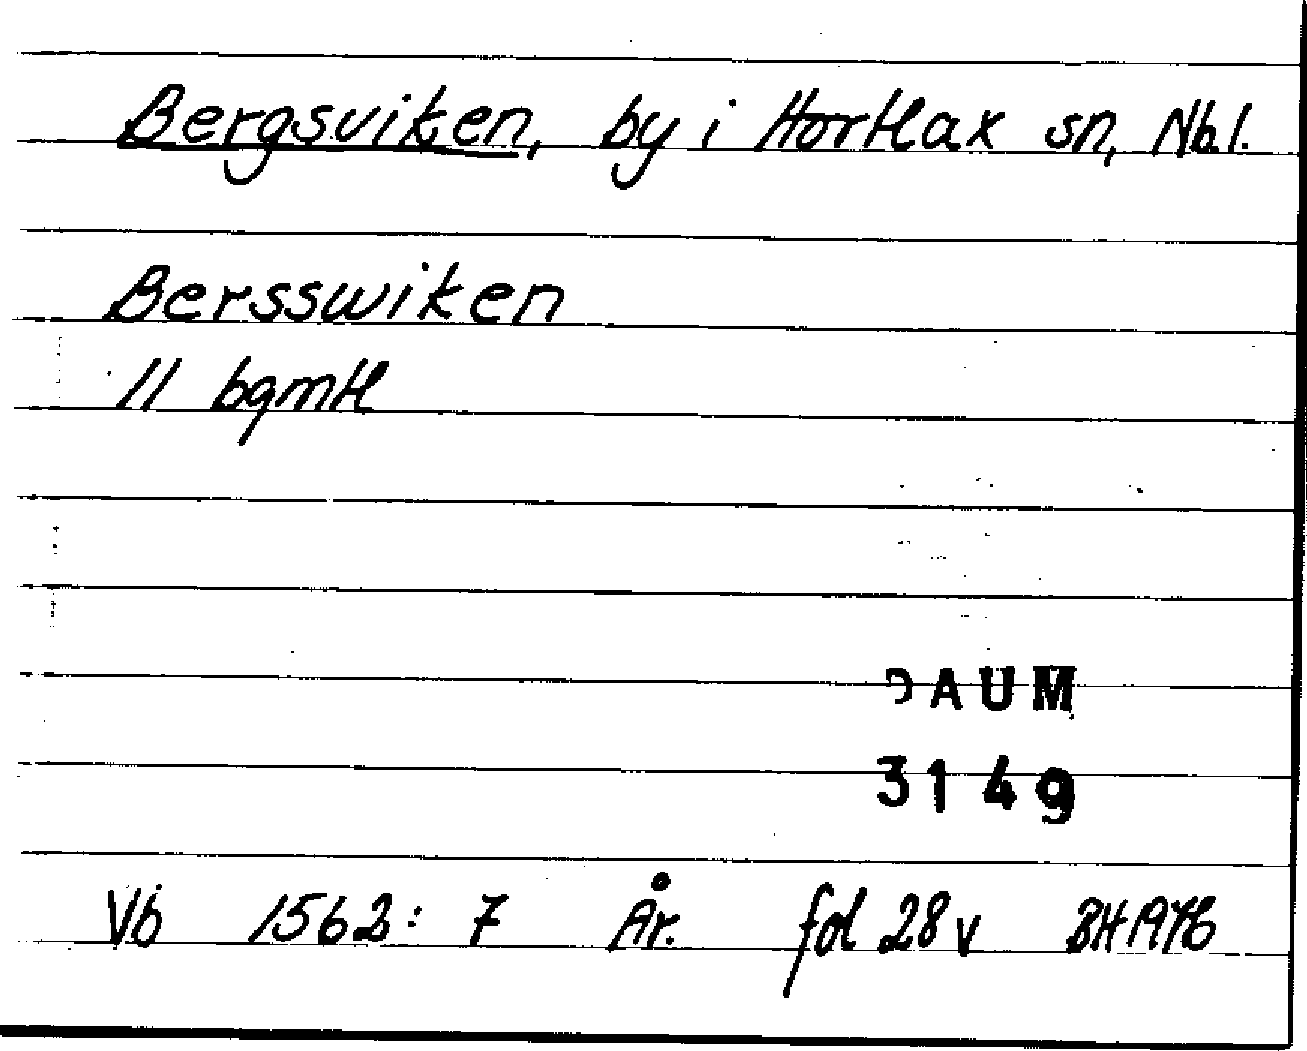 Bergsviken, by i Hortlax sn, Nb.l.
Bersswiken
11 bgmtl
DAUM
3149
Vb 1562: 7 År. fol 28 v BH 1976